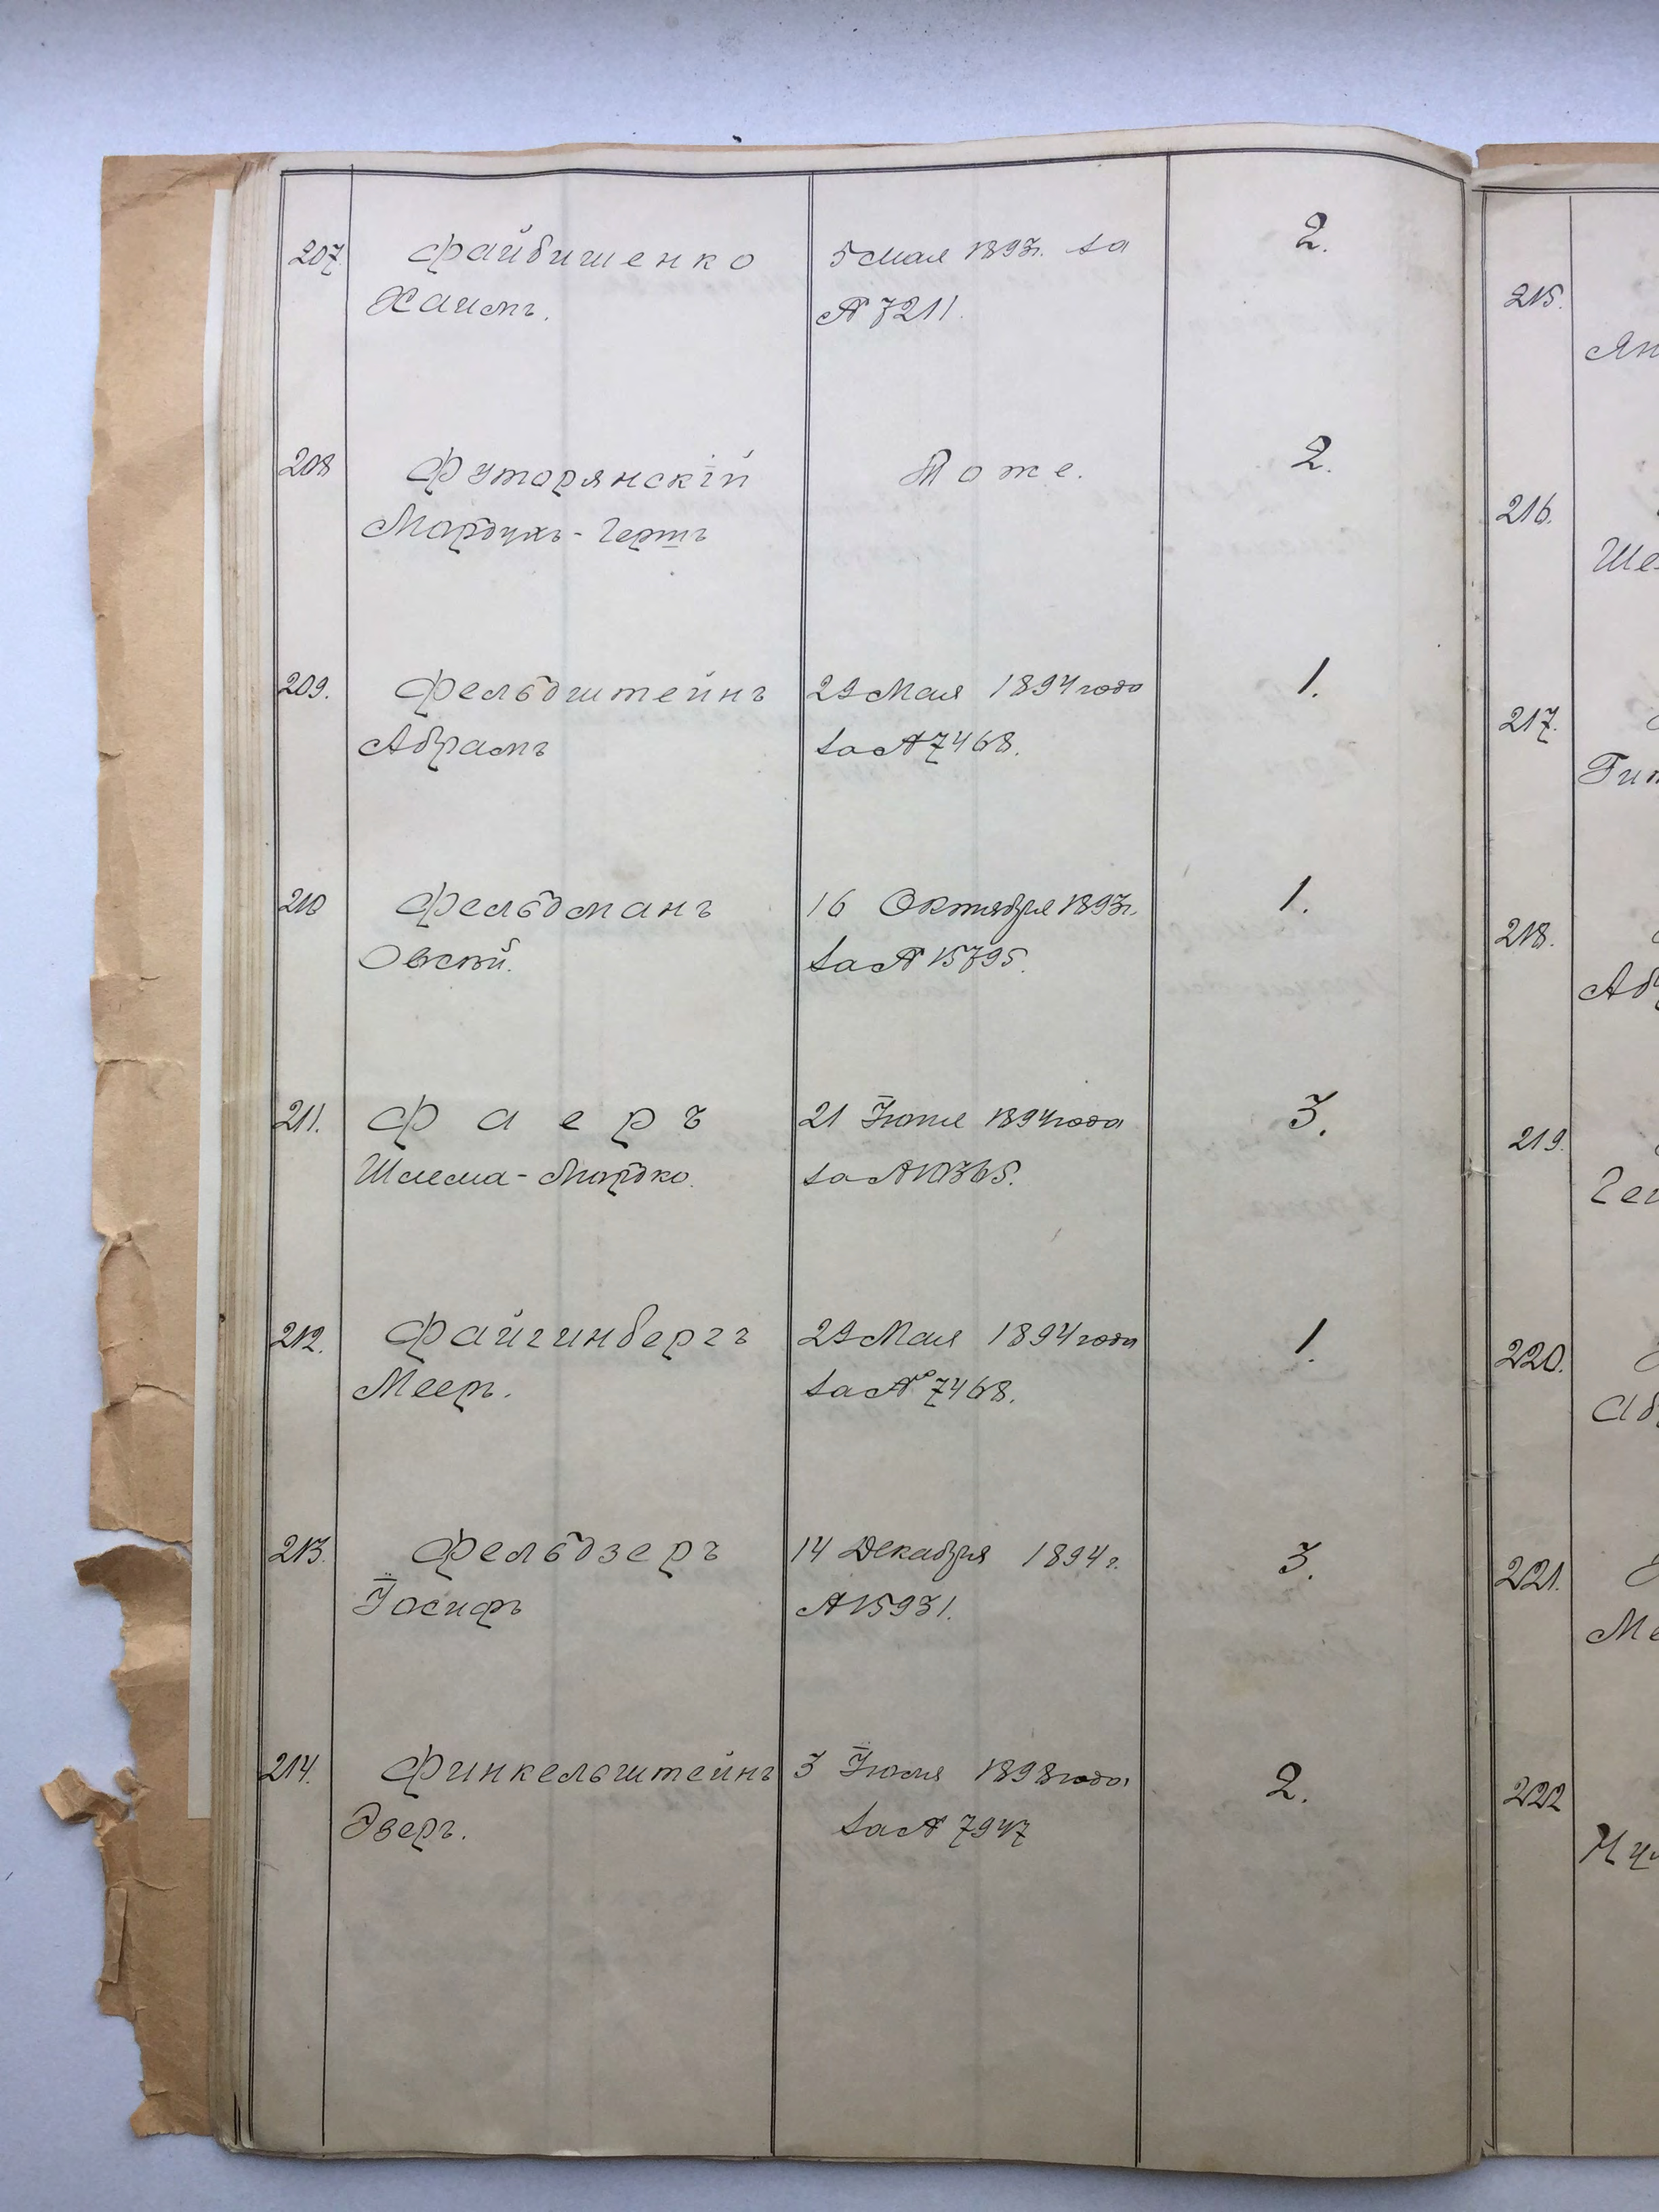 207. Файбишенко 5 Мая 1893г. за 2.
Хаимъ. № 7211.
208 Футорянскій Тоже. 2.
Мордухъ-Гершъ
209. Фельдштейнъ 29 Мая 1894 года 1.
Абрамъ за № 7468.
210 Фельдманъ 16 Октября 1893г. 1.
Овсей. за № 15795.
211. Фаеръ 21 1894 года 3.
Шлема-Мордко. за № 10365.
212. Файгинбергъ 29 Мая 1894 года 1.
Мееръ. за № 7468.
213. Фельдзеръ 14 Декабря 1894 г. 3.
Іосифъ № 15931.
214. Финкельштейнъ 3 1898 года 2.
Эверъ. за № 7947
215.
Ян
216.
Ше
217.
Гит
218.
Аб
219.
Ге
220.
Аб
221.
Ме
222